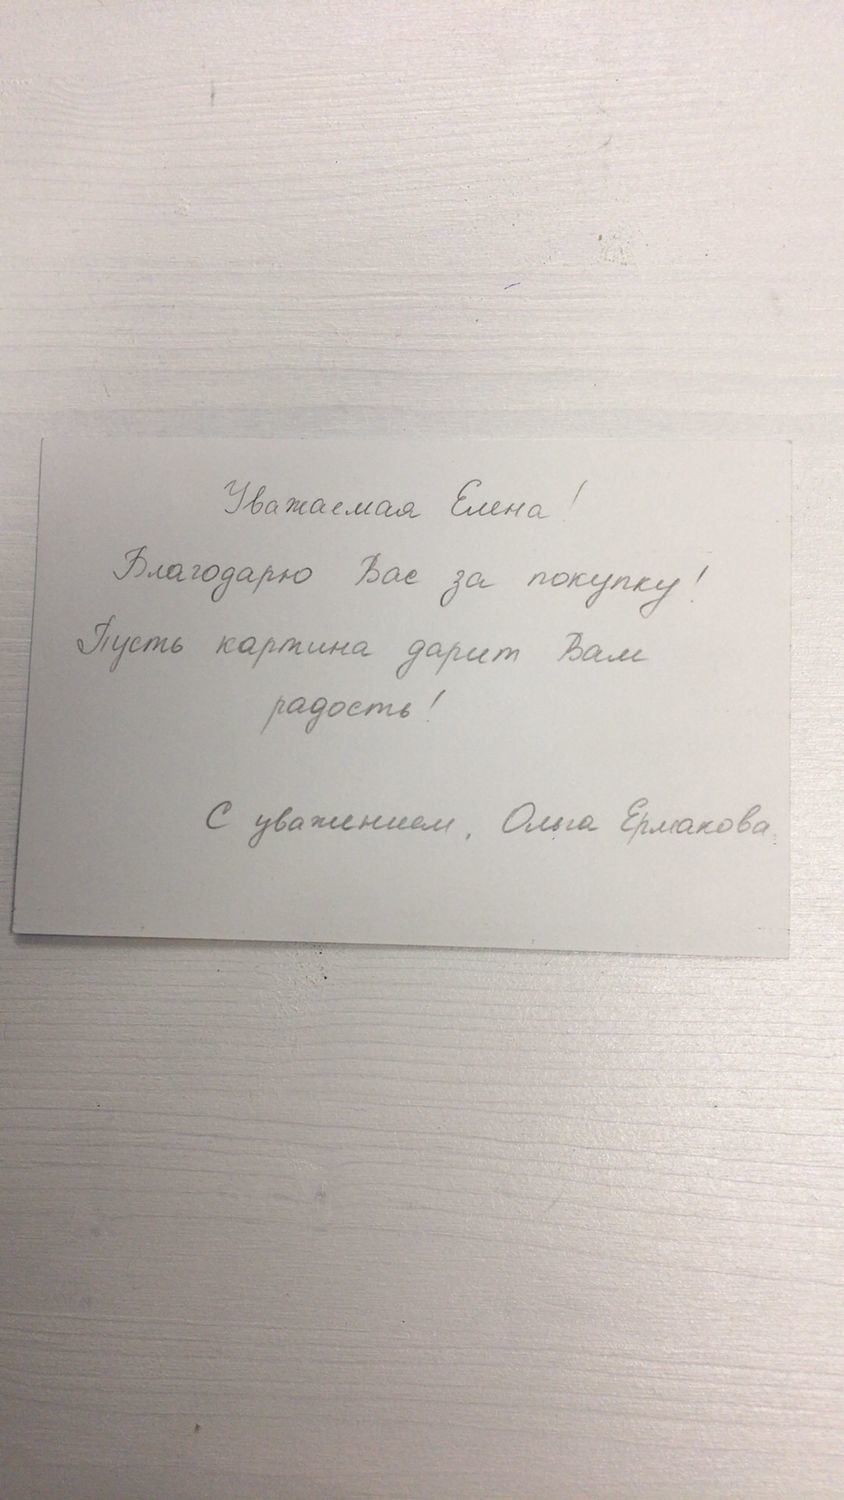 Уважаемая Елена!
Благодарю Вас за покупку!
Пусть картина дарит Вам
радость!
С уважением, Ольга Ермакова